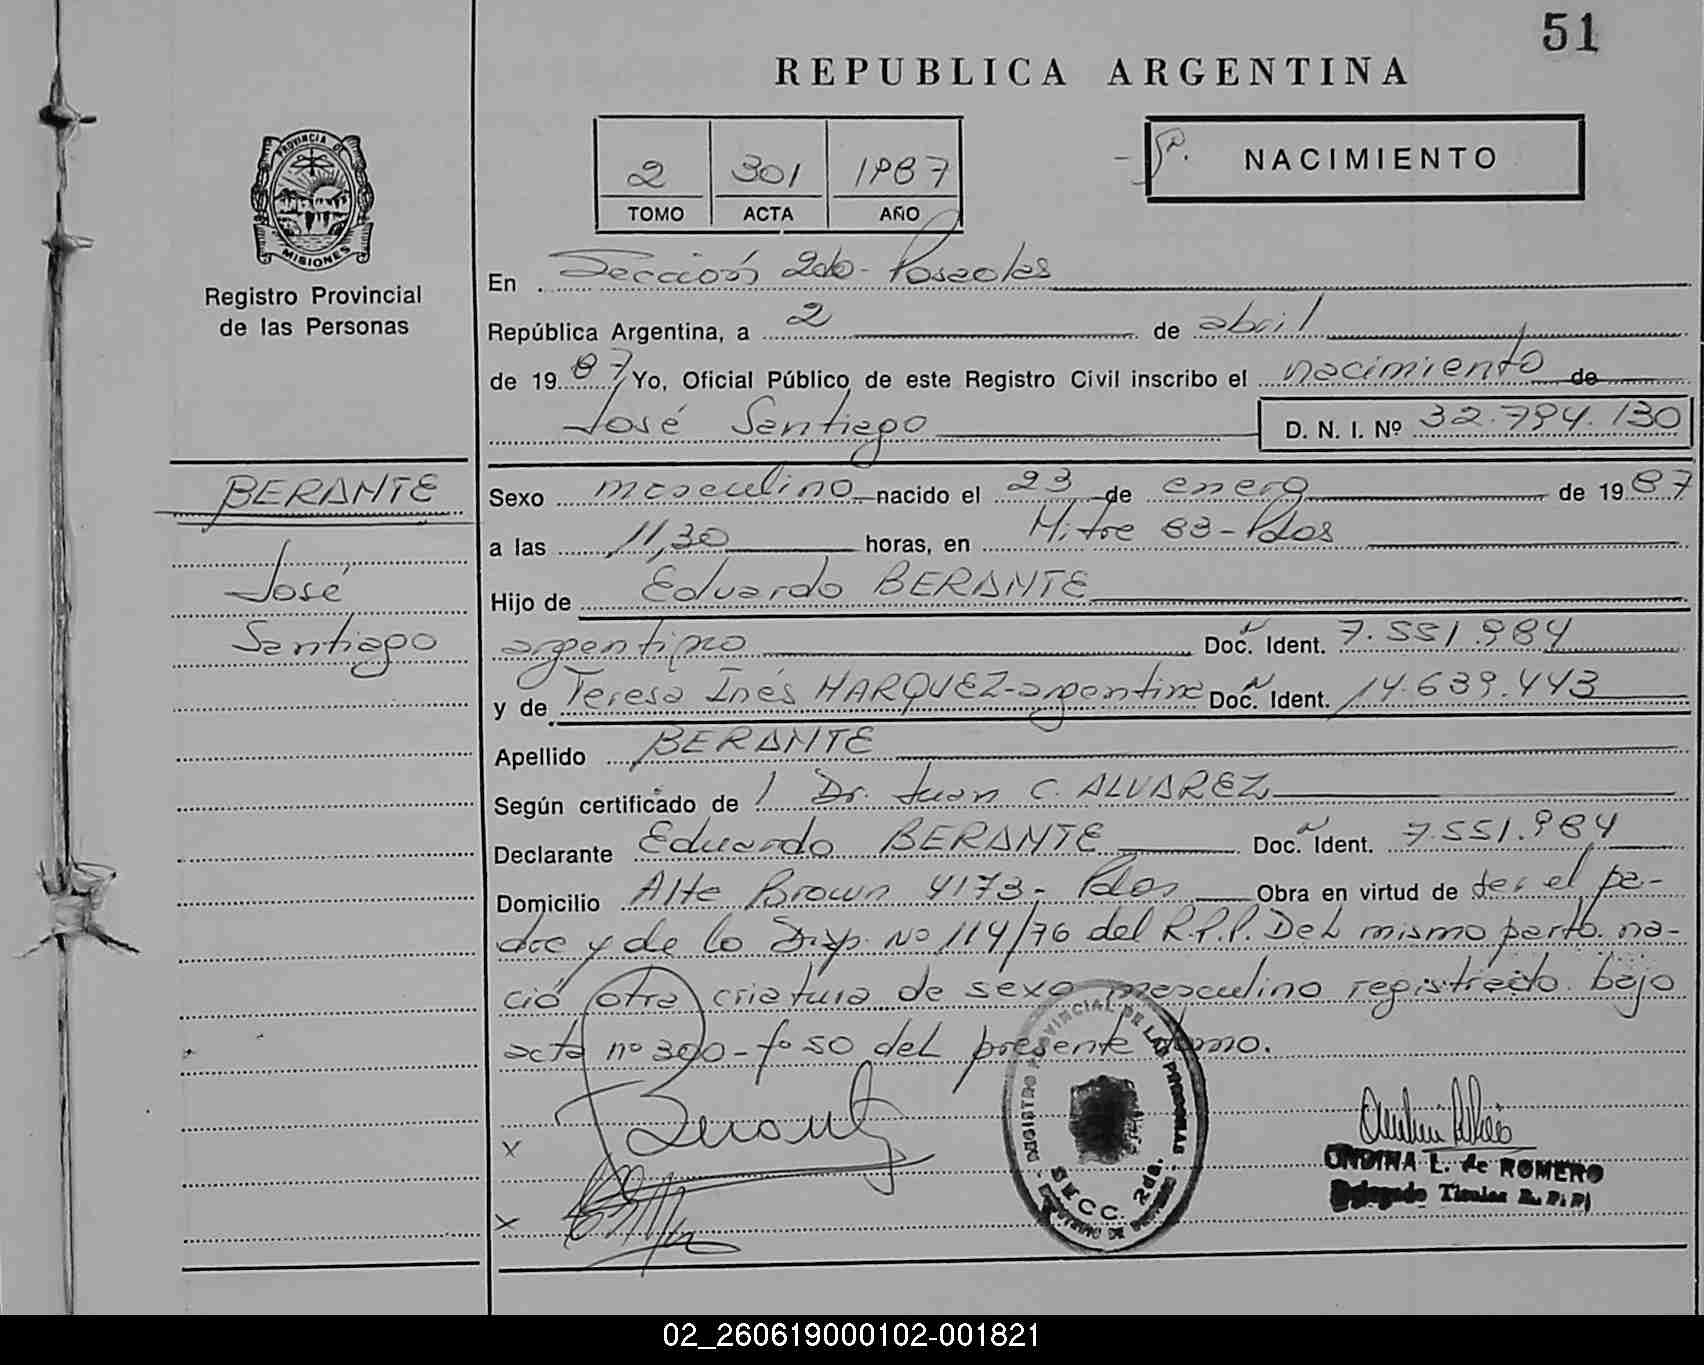 51
REPUBLICA ARGENTINA
2 301 1987
TOMO ACTA AÑO
NACIMIENTO
PROVINCIA DE
MISIONES
Registro Provincial
de las Personas
En Sección 2da - Posadas
República Argentina, a 2 de abril
de 1987 Yo, Oficial Público de este Registro Civil inscribo el nacimiento de
José Santiago D. N. I. Nº 32.794.130
BERANTE
José
Santiago
Sexo masculino nacido el 23 de enero de 1987
a las 11,30 horas, en Mitre 83 - Pdas
Hijo de Eduardo BERANTE
argentino Doc. Ident. 7.551.984
y de Teresa Inés MARQUEZ - argentina Doc. Ident. 14.639.443
Apellido BERANTE
Según certificado de Dr. Juan C. ALVAREZ
Declarante Eduardo BERANTE Doc. Ident. 7.551.984
Domicilio Alte Brown 4173 - Pdas Obra en virtud de ser el pa-
dre y de la Disp. Nº 114/76 del R.P.P. Del mismo parto na-
ció otra criatura de sexo masculino registrado bajo
acta nº 300 - fº 50 del presente tomo.
REGISTRO PROVINCIAL DE LAS PERSONAS
SECC. 2da.
x
x
ONDINA L. de ROMERO
Delegado Titular R. P. P.
02_260619000102-001821